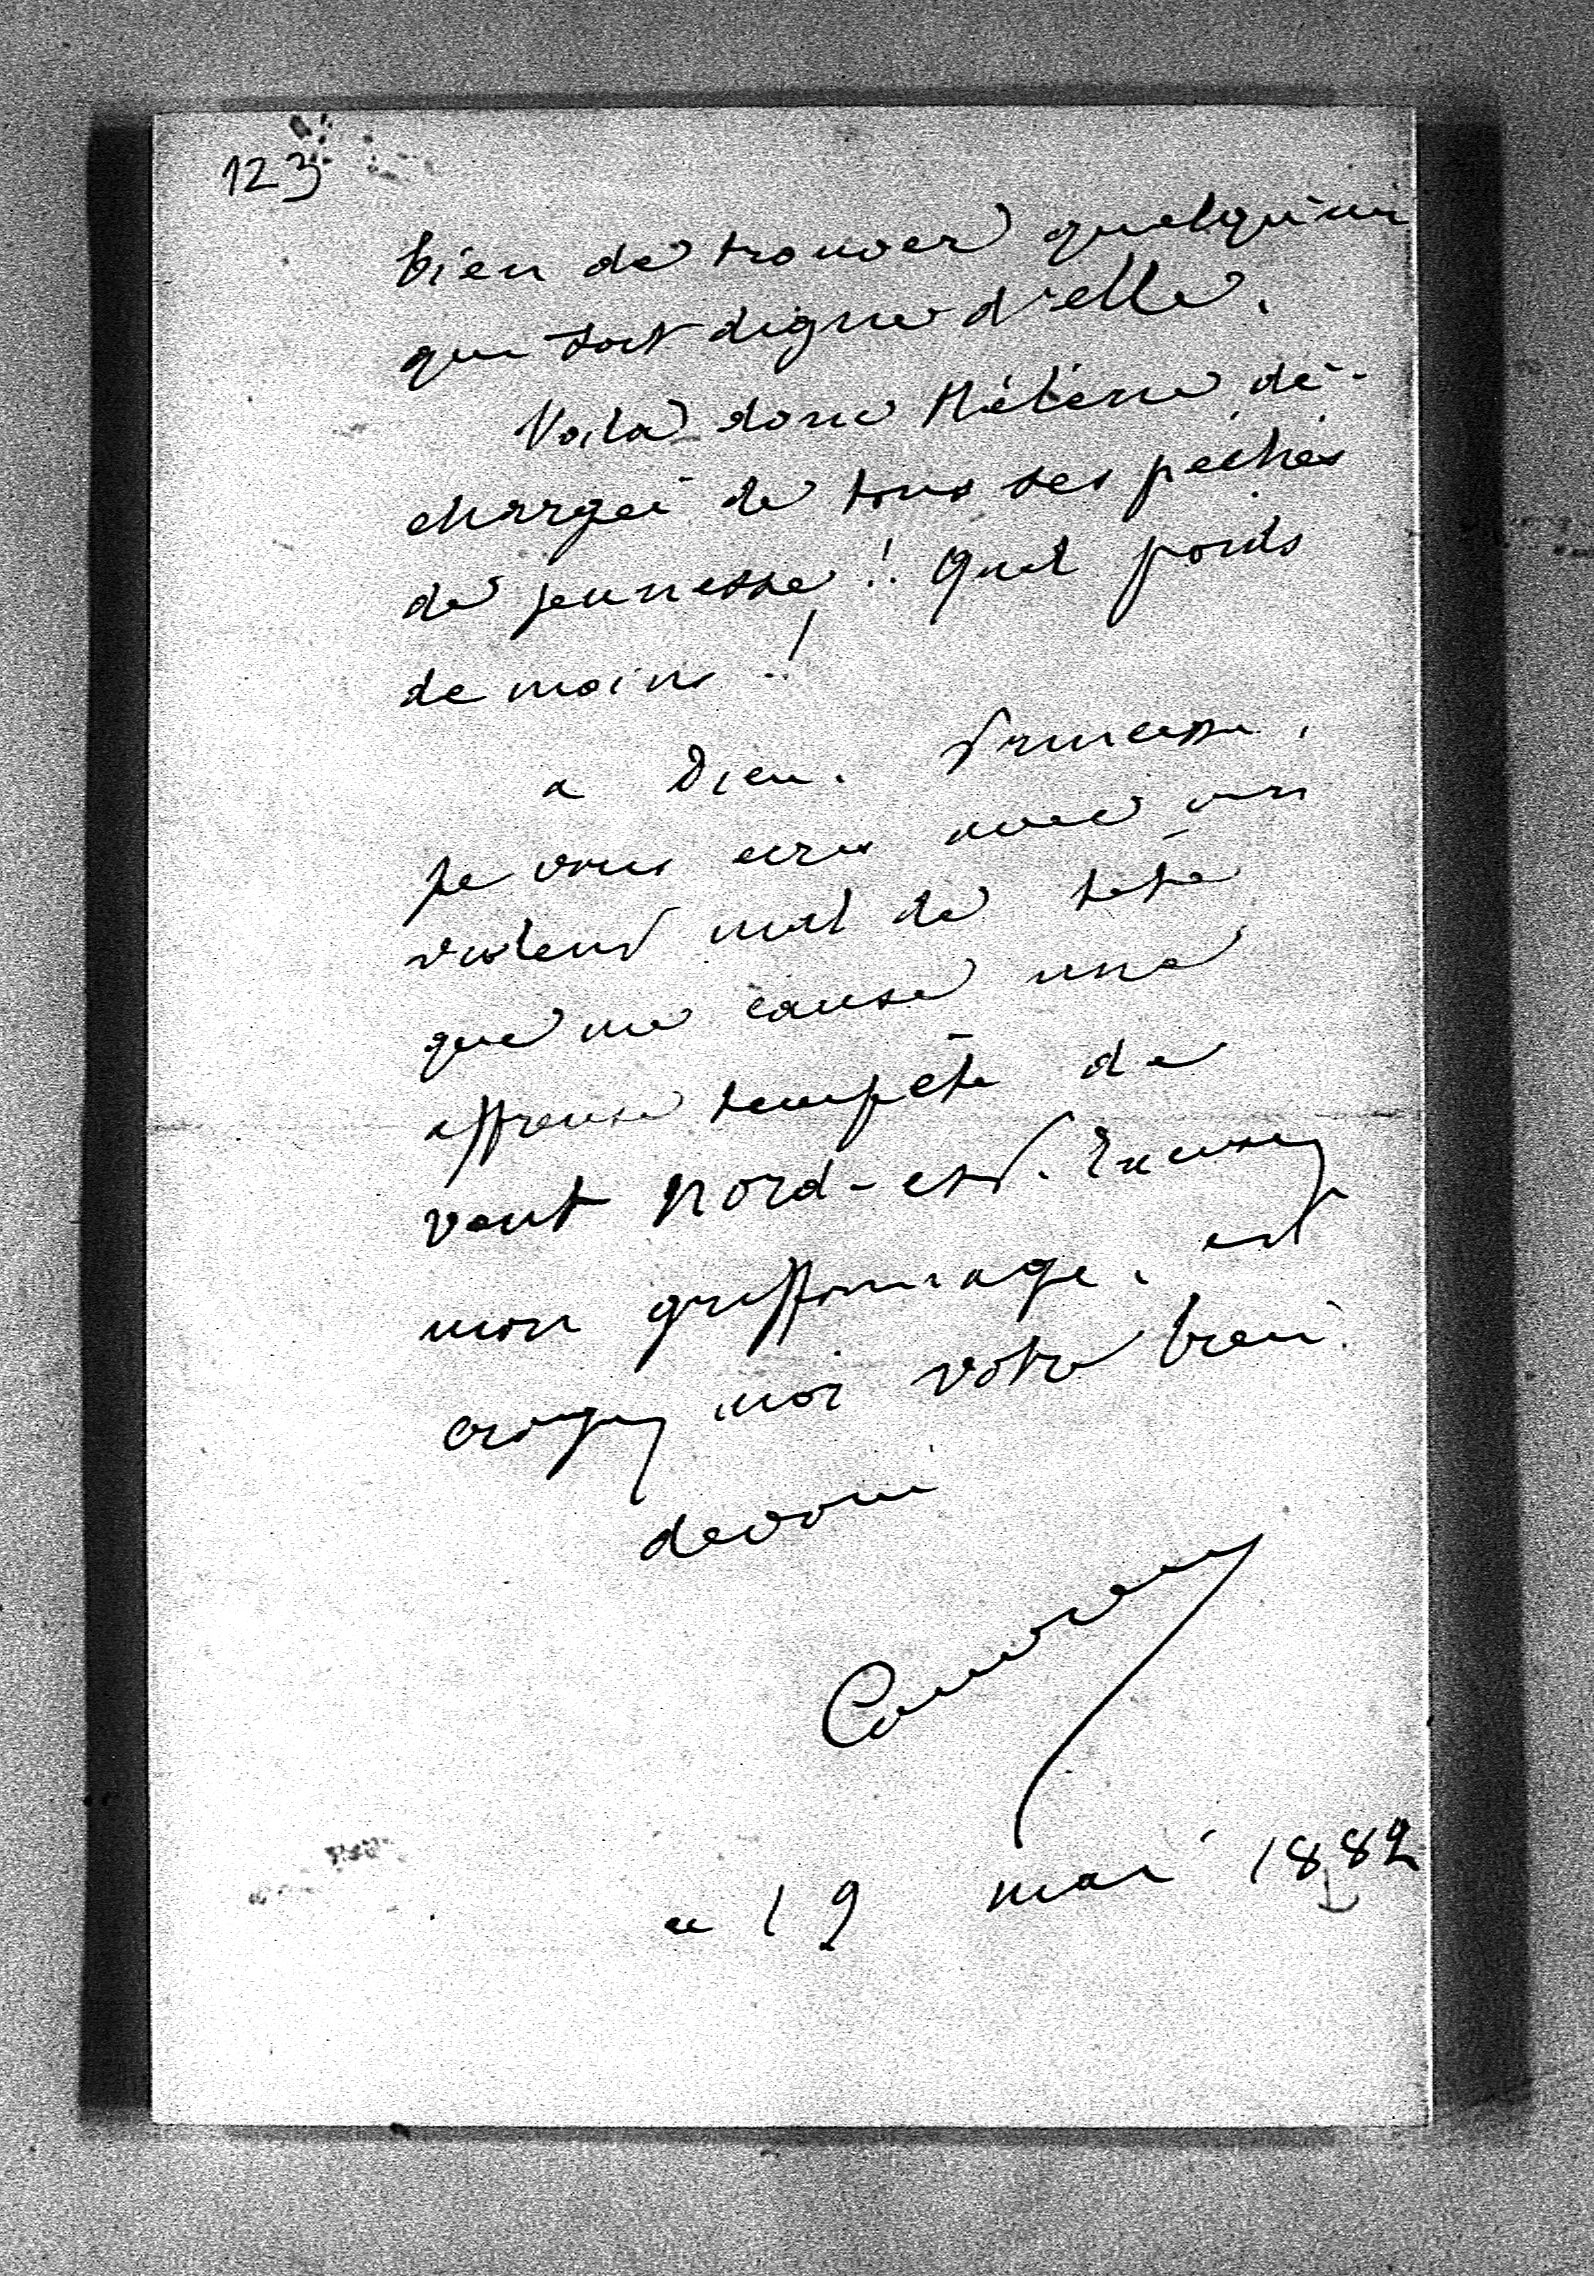 123
bien de trouver quelqu'un
qui soit digne d'elle.
Voila donc Hélène dé-
chargée de tous ses péchés
de jeunesse !! Quel poids
de moins !!
a Dieu. Princesse,
je vous ecris avec un
violent mal de tête
que me cause une
affreuse tempête de
vent nord-est. Excusez
mon griffonnage, et
croyez moi votre bien
devoué
ce 19 mai 1882